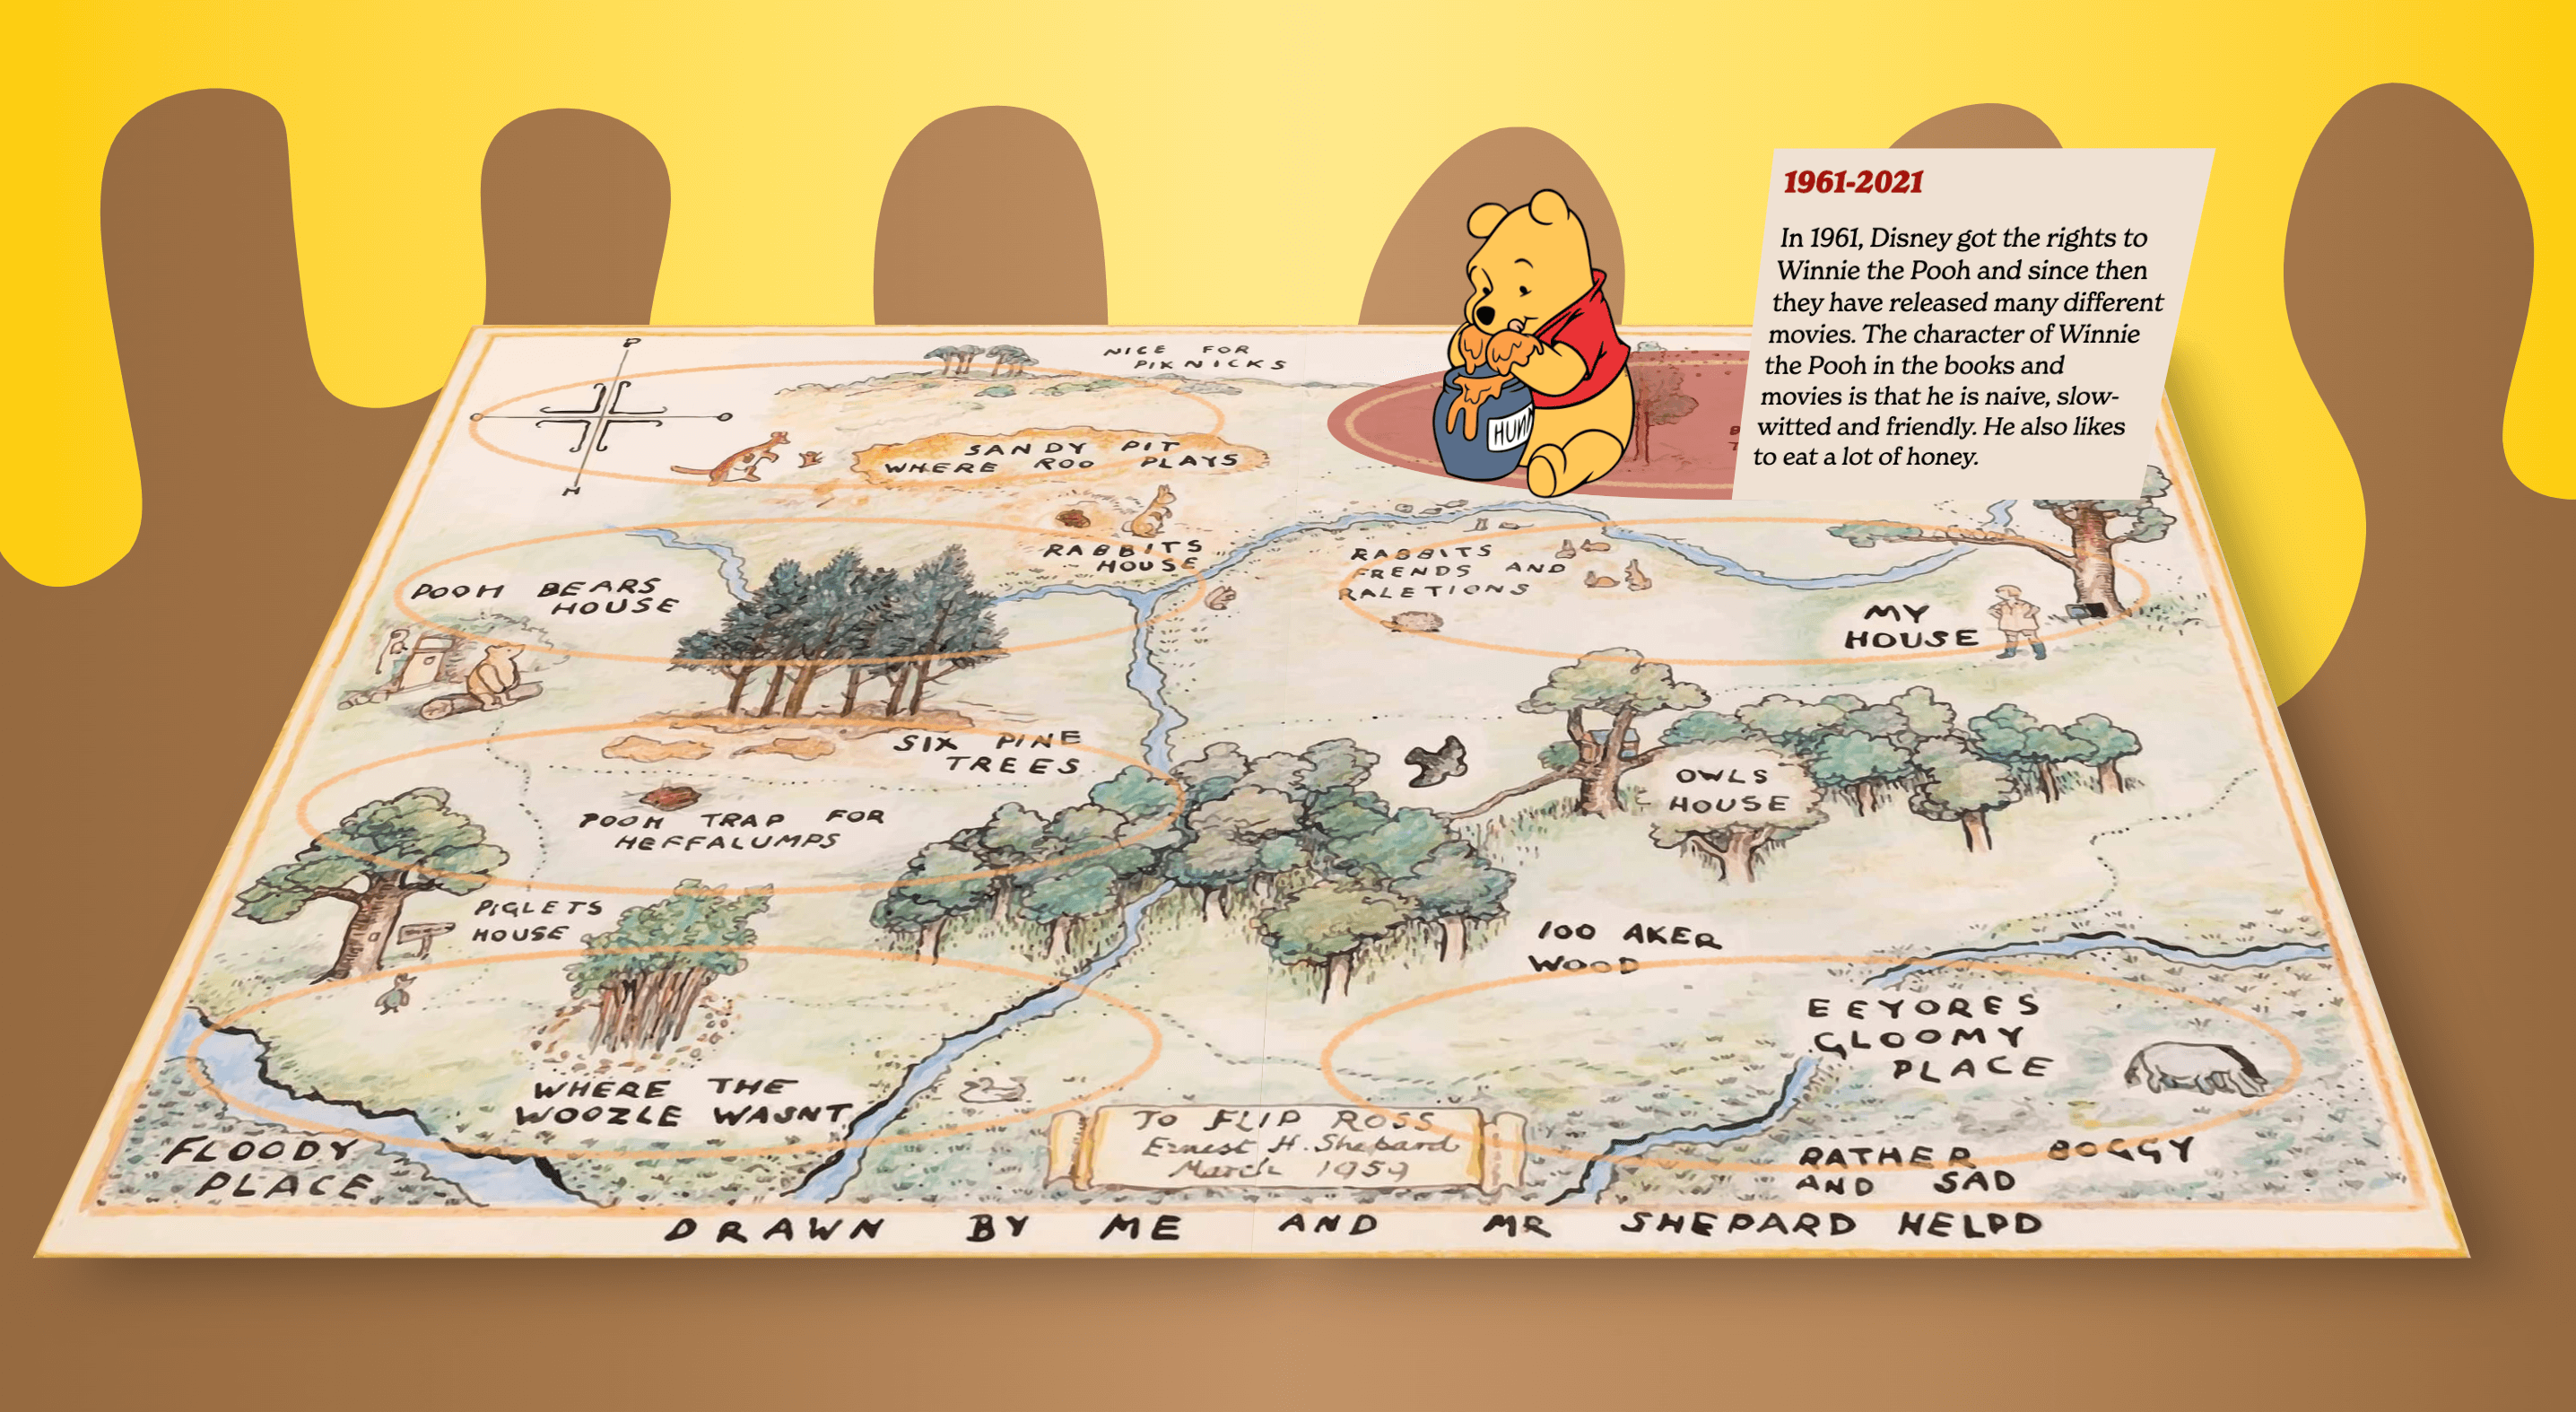 1961-2021
In 1961, Disney got the rights to
Winnie the Pooh and since then
they have released many different
movies. The character of Winnie
the Pooh in the books and
movies is that he is naive, slow-
witted and friendly. He also likes
to eat a lot of honey.
P
O
H
O
NICE FOR
PIKNICKS
SANDY PIT
WHERE ROO PLAYS
HUNN
RABBITS
HOUSE
RABBITS
FRENDS AND
RALETIONS
POOH BEARS
HOUSE
MY
HOUSE
SIX PINE
TREES
OWLS
HOUSE
POOH TRAP FOR
HEFFALUMPS
PIGLETS
HOUSE
100 AKER
WOOD
EEYORES
GLOOMY
PLACE
WHERE THE
WOOZLE WASNT
FLOODY
PLACE
TO FLIP ROSS
Ernest H. Shepard
March 1959
RATHER BOGGY
AND SAD
DRAWN BY ME AND MR SHEPARD HELPD